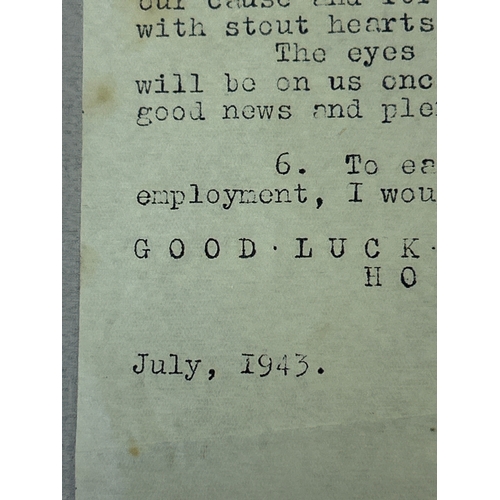 our cause and for
with stout hearts
The eyes
will be on us onc
good news and ple
6. To ea
employment, I wou
G O O D . L U C K .
H O
July, 1943.